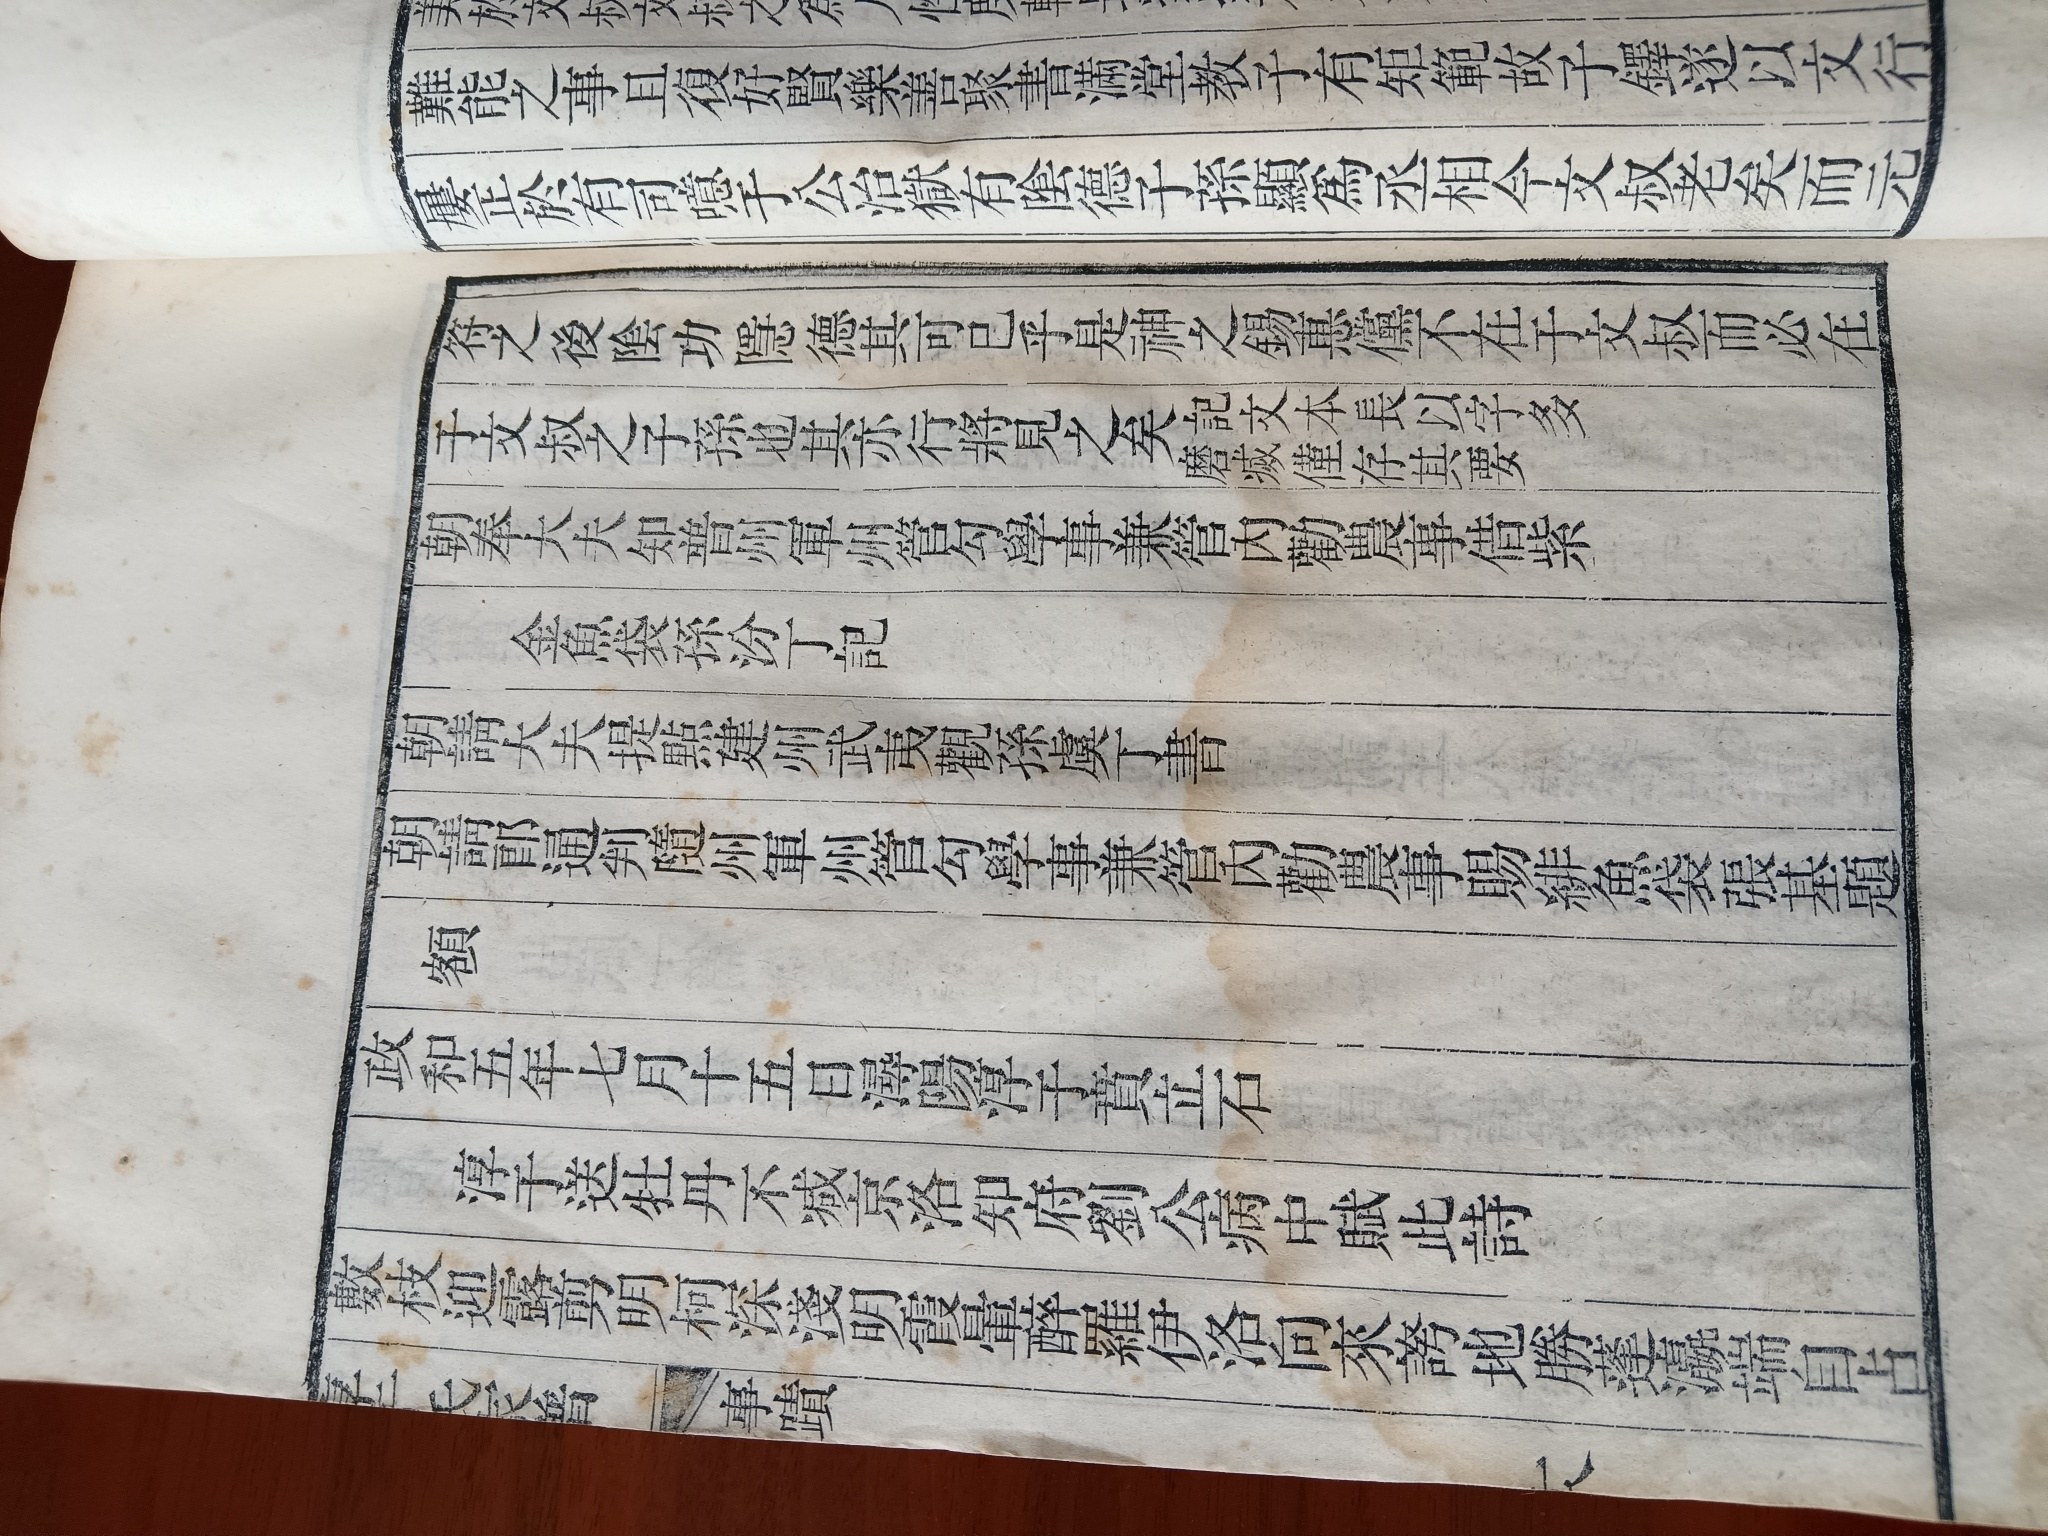 難能之事且復好賢樂善聚書滿堂教子有矩範故子鐸遂以文行
屢止於有司噫于公治獄有陰德子孫顯為丞相今文叔老矣而元
符之後陰功隱德其可已乎是神之錫羨儻不在于文叔而必在
于文叔之子孫也其亦行將見之矣記文本長以字多
磨滅僅存其要
朝奉大夫知普州軍州管勾學事兼管內勸農事借紫
金魚袋孫汾丁記
朝請大夫提點建州武夷觀孫虞丁書
朝請郎通判隨州軍州管勾學事兼管內勸農事賜緋魚袋張基題
額
政和五年七月十五日潯陽淳于賁立石
淳于送牡丹不減京洛知府劉公病中賦此詩
數枝迎露剪明柯深淺明霞暈醉羅伊洛向來誇地勝蓬瀛端自占
事蹟